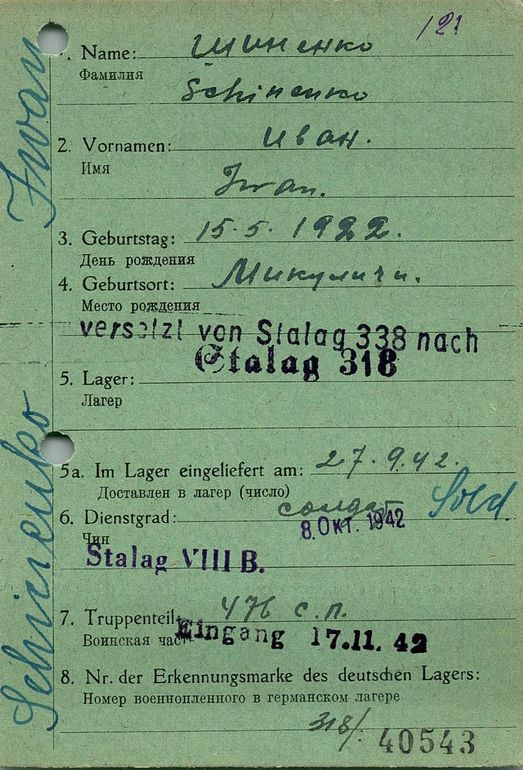 121
1. Name: Шиненко
Фамилия
Schinenko
2. Vornamen: Иван.
Имя
Iwan.
3. Geburtstag: 15.5.1922.
День рождения
4. Geburtsort: Микуличи.
Место рождения
versetzt von Stalag 338 nach
Stalag 318
5. Lager:
Лагер
5a. Im Lager eingeliefert am: 27.9.42.
Доставлен в лагер (число)
6. Dienstgrad: солдат Sold
Чин
8. Okt. 1942
Stalag VIII B.
7. Truppenteil: 476 с.п.
Воинская част
Eingang 17.11.42
8. Nr. der Erkennungsmarke des deutschen Lagers:
Номер военнопленного в германском лагере
318/. 40543
Schinenko Iwan